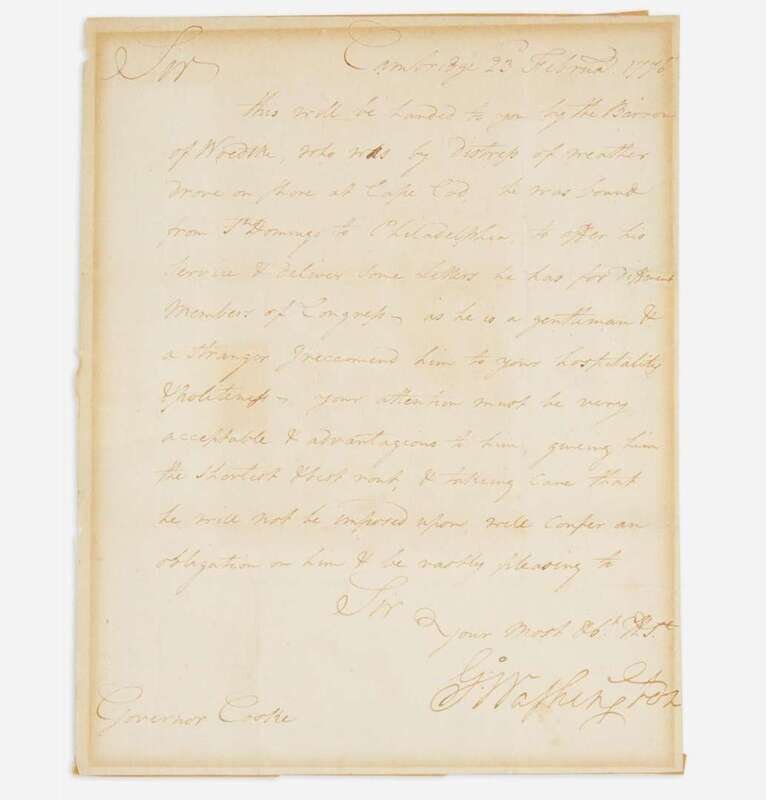 Sir Cambridge 23 Februa. 1776
this will be handed to you by the Barron
of Woedtke, who was by Distress of weather
drove on shore at Cape Cod, he was bound
from St Domingo to Philadelphia, to offer his
Service & deliver some Letters he has for Different
Members of Congress, as he is a gentleman &
a stranger I reccomend him to your hospitality
& politeness, your attention must be very
acceptable & advantagious to him, giving him
the shortest & best rout, & taking care that
he will not be imposed upon, will confer an
obligation on him & be vastly pleasing to
Sir
your Most Obt. H St
Go Washington
Governor Cooke